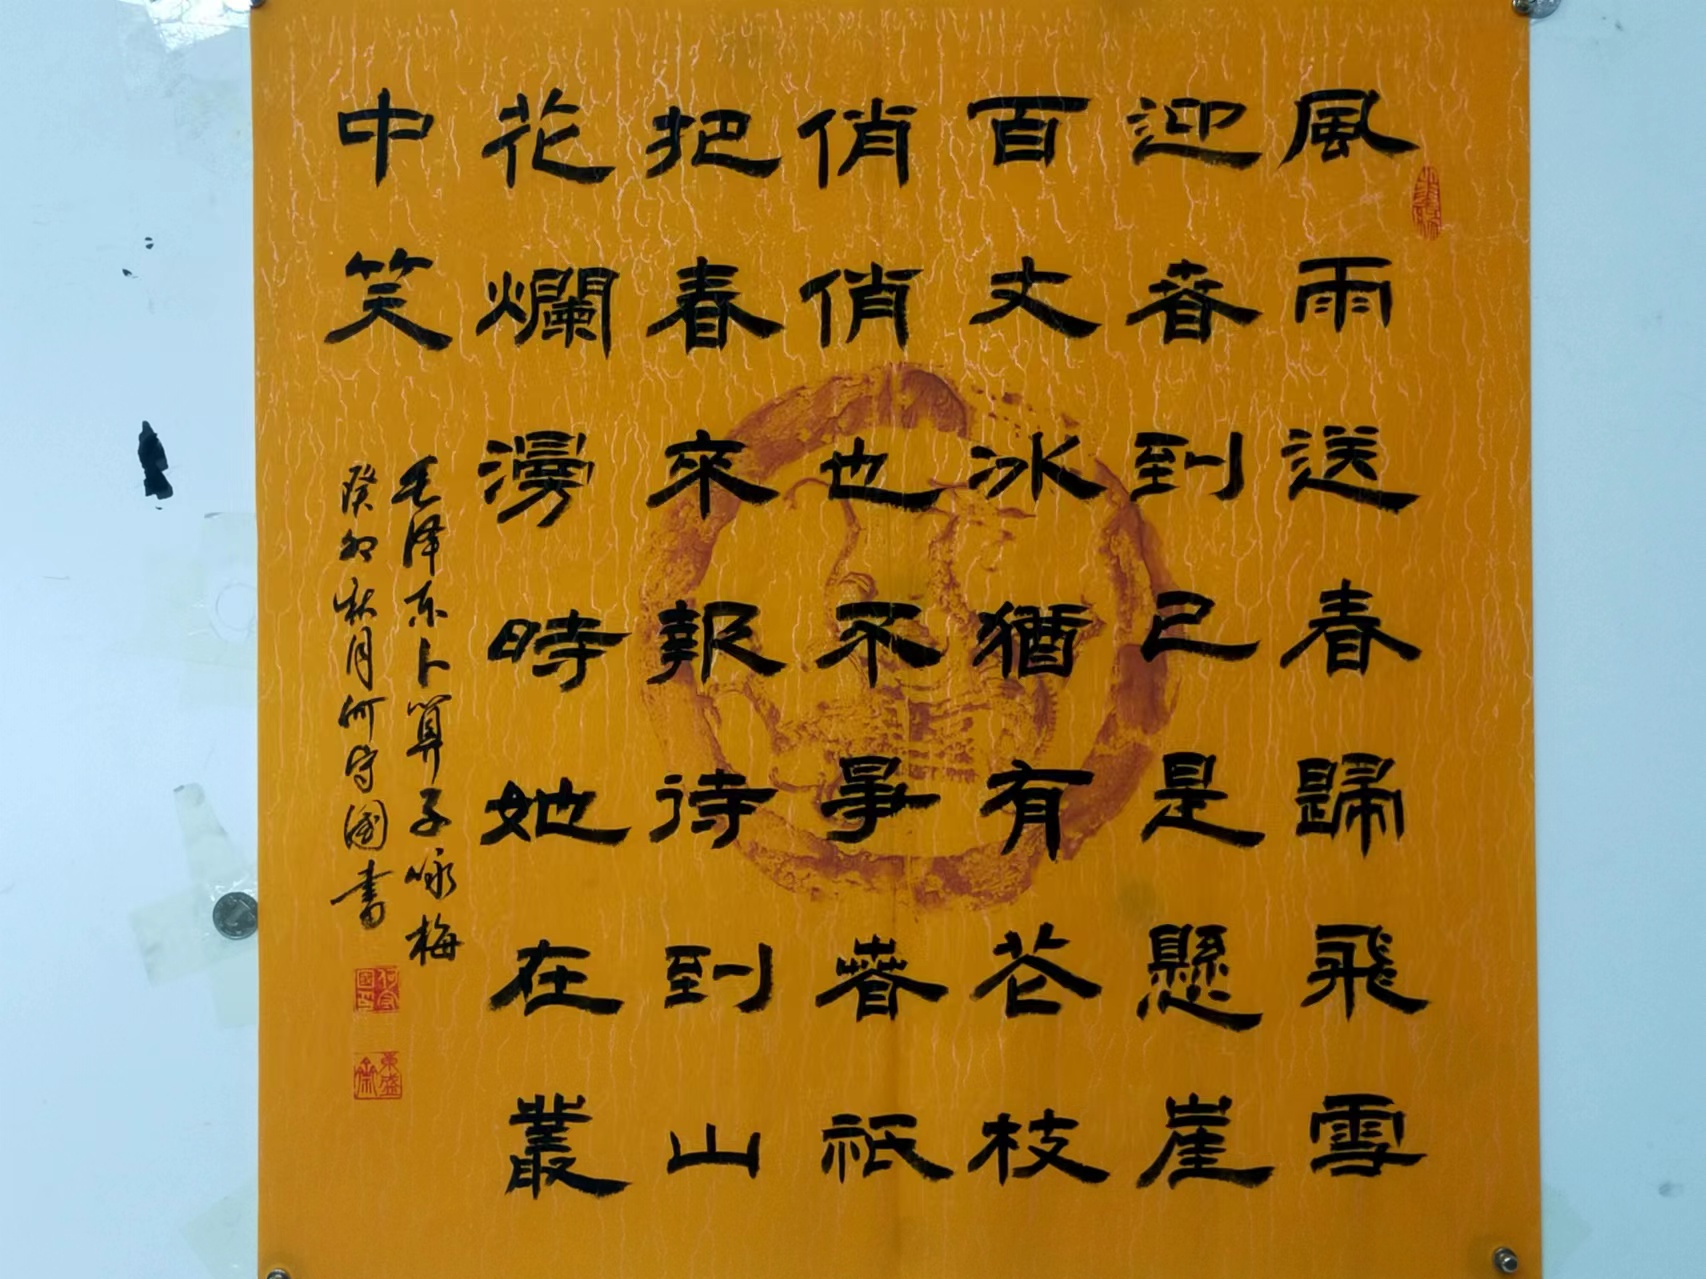 風雨送春歸飛雪
迎春到已是懸崖
百丈冰猶有花枝
俏俏也不爭春祇
把春來報待到山
花爛漫時她在叢
中笑
毛泽东卜算子咏梅
癸卯秋月何守国書